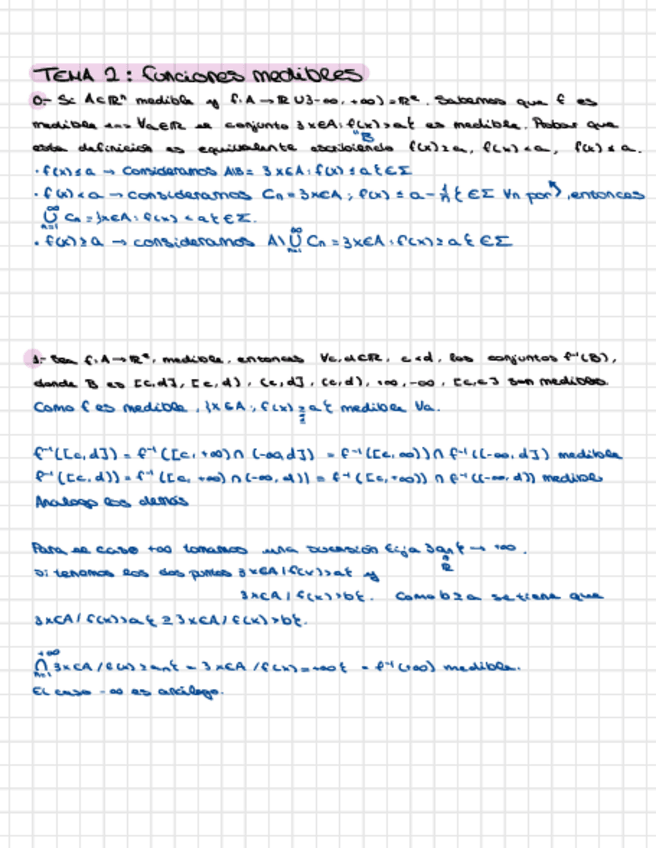 TEMA 2: funciones medibles
0.- Si A∈ℝⁿ medible y f: A→ℝ ∪ {-∞, +∞} = ℝ*. Sabemos que f es
medible <=> ∀a∈ℝ el conjunto {x∈A: f(x)>a} es medible. Probar que
"B
esta definición es equivalente escribiendo f(x)≥a, f(x)<a, f(x)≤a.
· f(x)≤a → Consideramos A\B = {x∈A: f(x)≤a} ∈Σ
· f(x)<a → consideramos Cn = {x∈A; f(x) ≤ a-1/n} ∈Σ ∀n por ↑, entonces
∞⋃n=1 Cn = {x∈A: f(x)<a} ∈Σ.
· f(x)≥a → consideramos A\ ∞⋃n=1 Cn = {x∈A: f(x)≥a} ∈Σ
1.- Sea f: A→ℝ*, medible, entonces ∀c,d∈ℝ, c<d, los conjuntos f⁻¹(B),
donde B es [c,d], [c,d), (c,d], (c,d), +∞, -∞, [c,c] son medibles.
Como f es medible, {x∈A; f(x) a} medible ∀a.
f⁻¹([c,d]) = f⁻¹([c,+∞)∩(-∞,d]) = f⁻¹([c,∞))∩f⁻¹((-∞,d]) medible
f⁻¹([c,d)) = f⁻¹([c,+∞)∩(-∞,d)) = f⁻¹([c,+∞))∩f⁻¹((-∞,d)) medible
Análogo los demás
Para el caso +∞ tomamos una sucesión fija {an} → +∞.
ℝ
Si tenemos los dos puntos {x∈A/f(x)>a} y
{x∈A/f(x)>b}. Como b≥a se tiene que
{x∈A/f(x)>a} ⊇ {x∈A/f(x)>b}.
+∞⋂n=1 {x∈A/f(x)>an} = {x∈A/f(x)=+∞} = f⁻¹(+∞) medible.
El caso -∞ es análogo.